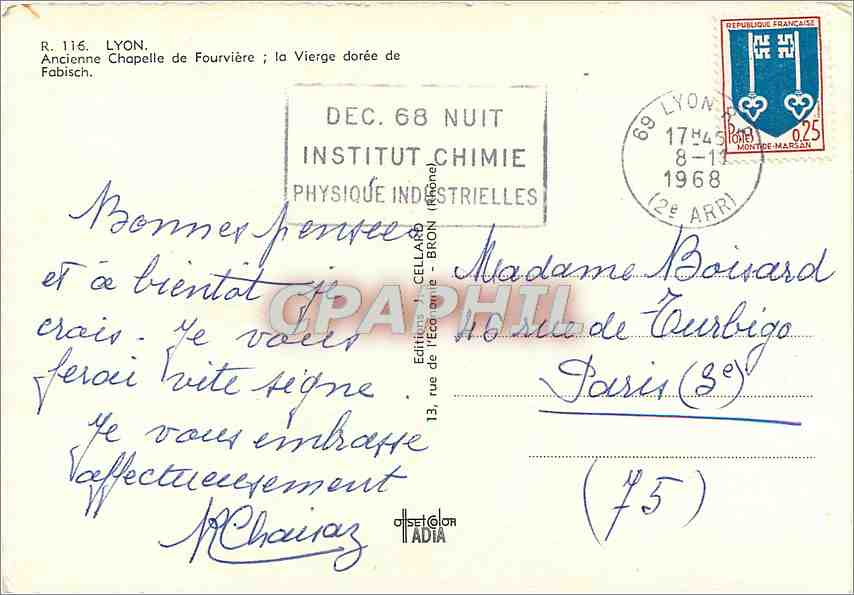 R. 116. LYON.
Ancienne Chapelle de Fourvière ; la Vierge dorée de
Fabisch.
DEC. 68 NUIT
INSTITUT CHIMIE
PHYSIQUE INDUSTRIELLES
69 LYON
17H45
8-11
1968
(2e ARR)
REPUBLIQUE FRANÇAISE
Postes
0,25
MONT-DE-MARSAN
Bonnes pensées
et à bientôt je
crois. Je vous
ferai vite signe.
Je vous embrasse
affectueusement
Editions J. CELLARD
13, rue de l'Economie - BRON (Rhône)
CPAPHIL
Madame Boisard
46 rue de Turbigo
Paris (3e)
(75)
offset color
ADIA